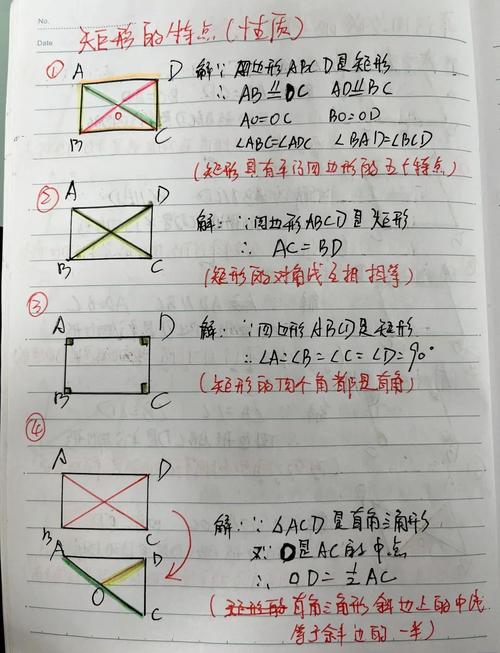 No.
Date
矩形的特点(性质)
① A D
O
B C
解:∵四边形ABCD是矩形
∴ AB∥DC AD∥BC
AO=OC BO=OD
∠ABC=∠ADC ∠BAD=∠BCD
(矩形具有平行四边形的五个特点)
② A D
B C
解:∵四边形ABCD是矩形
∴ AC=BD
(矩形的对角线互相相等)
③
A D
B C
解:∵四边形ABCD是矩形
∴∠A=∠B=∠C=∠D=90°
(矩形的四个角都是直角)
④
A D
B C
A D
O
C
解:∵△ACD是直角三角形
又∵O是AC的中点
∴ OD=½AC
(矩形的直角三角形斜边上的中线
等于斜边的一半)